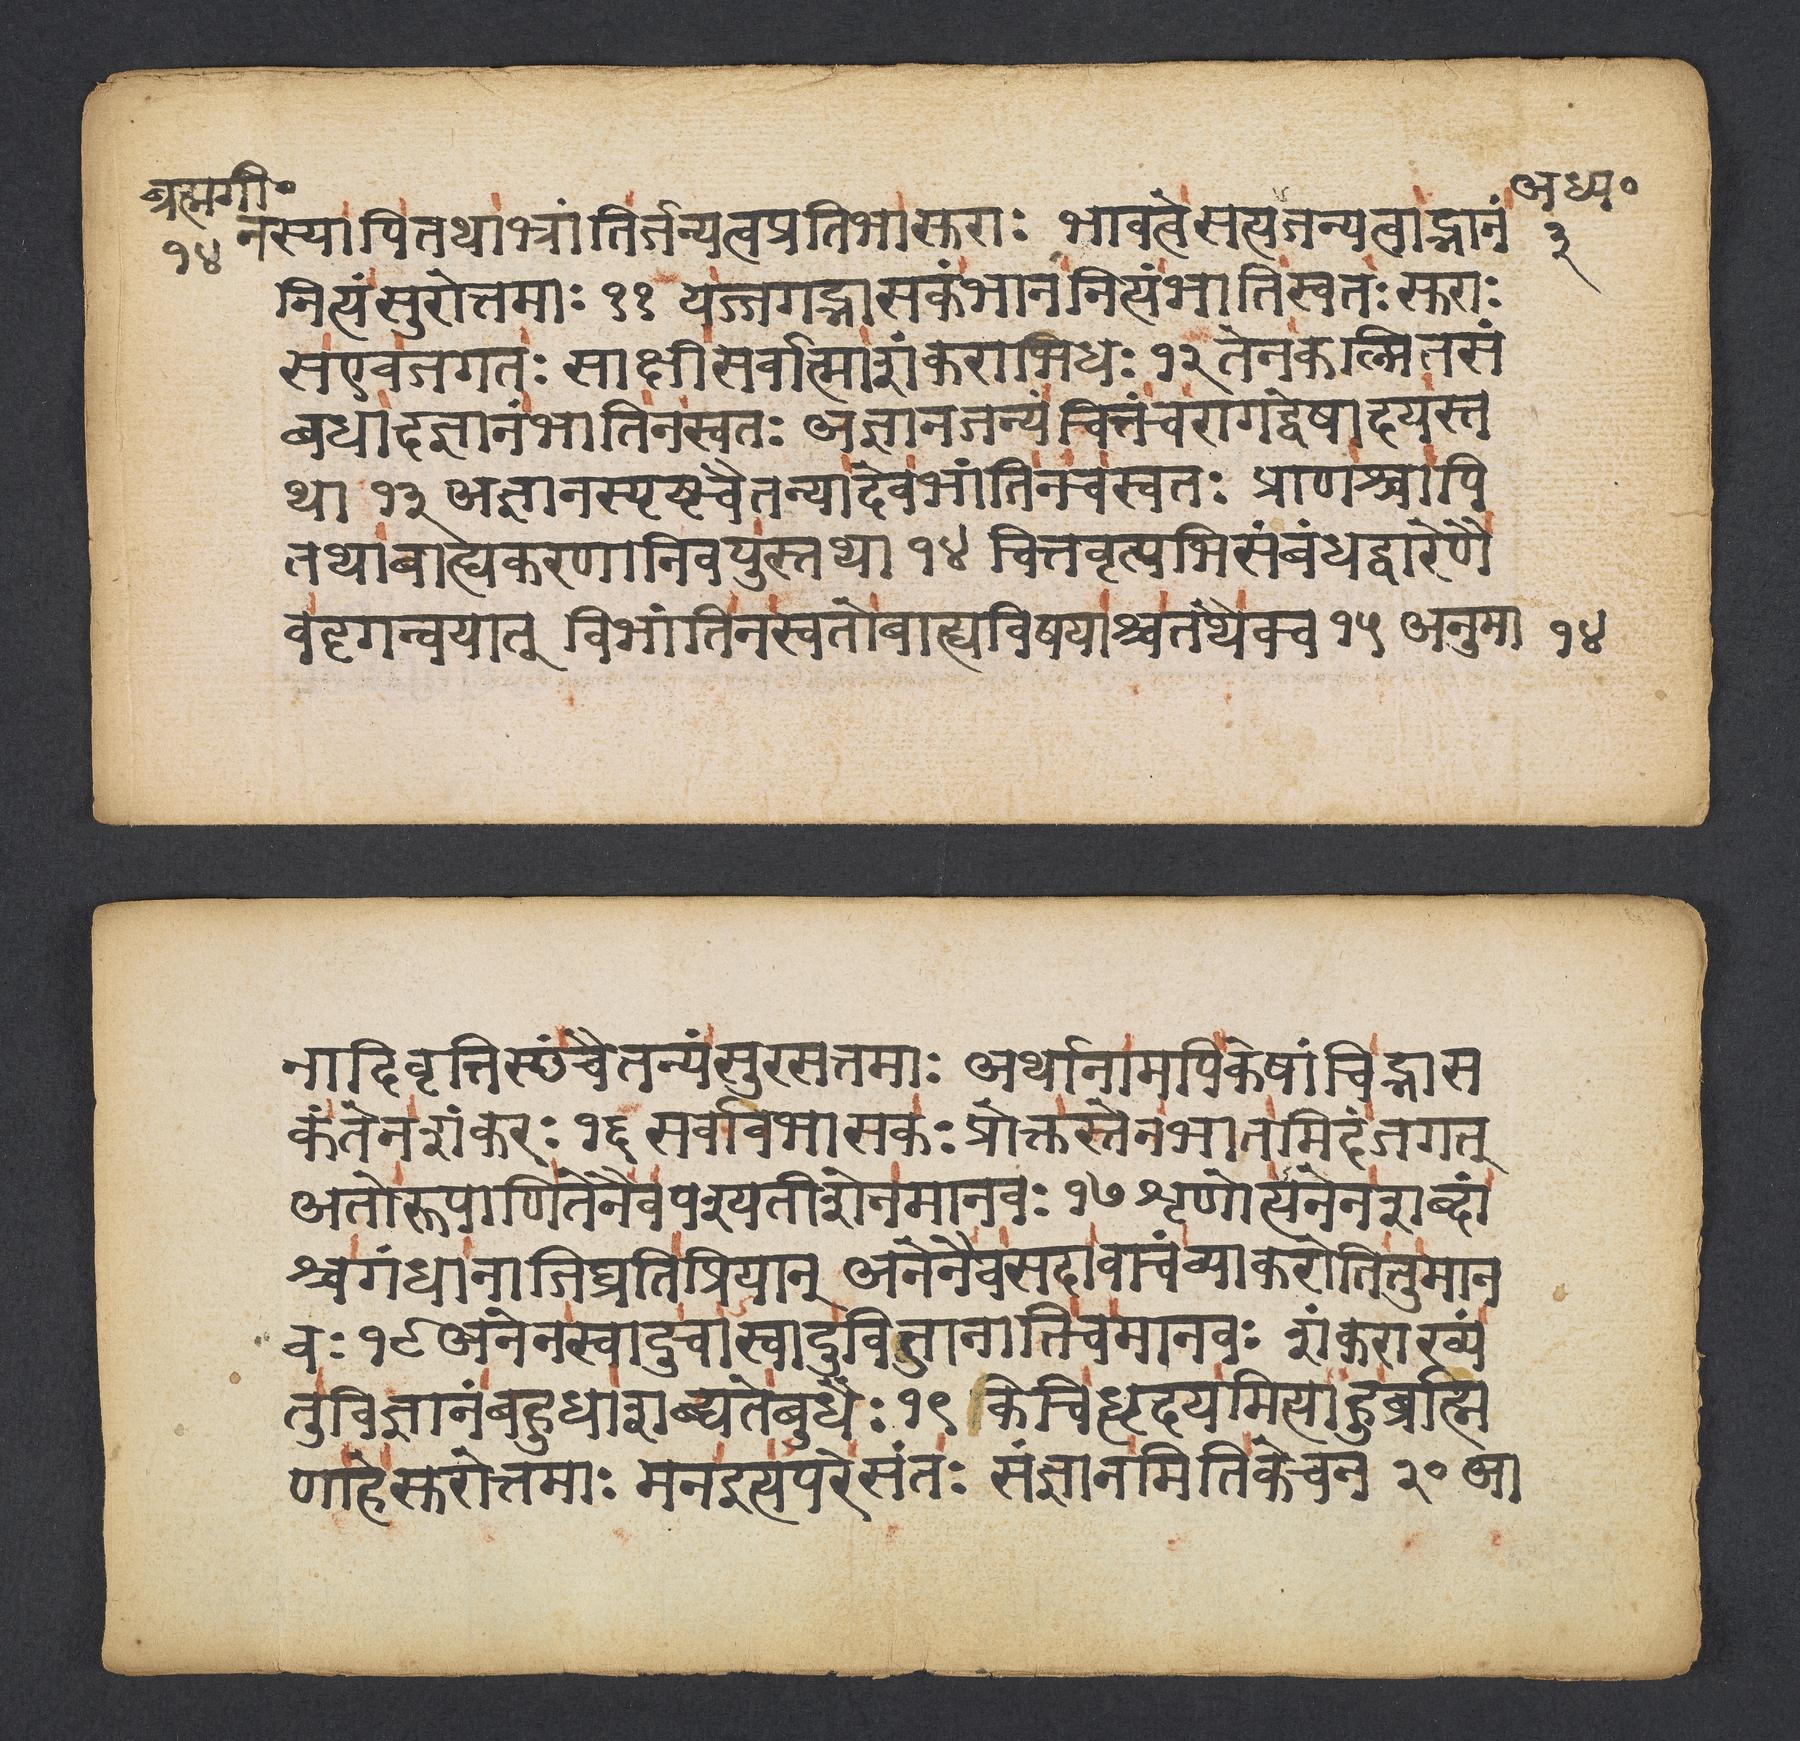 ब्रह्मगी॰
१४
अध्या॰
३
नस्यापितथाभ्रांतिर्जन्यत्वप्रतिभासुराः भावत्वेसत्यजन्यत्वाद्भानं
नित्यंसुरोत्तमाः ११ यज्जगद्भासकंभानंनित्यंभातिस्वतः सुराः
सएवजगतः साक्षीसर्वात्माशंकराभिधः १२ तेनकल्पितसं
बंधादज्ञानंभातिनस्वतः अज्ञानजन्यंचित्तंचरागद्वेषादयस्त
था १३ अज्ञानस्पृष्टचैतन्यादेवभांतिनचस्वतः प्राणश्चापि
तथाबाह्यकरणानिवपुस्तथा १४ चित्तवृत्यभिसंबंधद्वारेणै
वदृगन्वयात् विभांतिनस्वतोबाह्यविषयाश्चतथैवच १५ अनुमा १४
नादिवृत्तिस्थंचैतन्यंसुरसत्तमाः अर्थानामपिकेषांचिद्भास
कंतेनशंकरः १६ सर्वावभासकः प्रोक्तस्तेनभातमिदंजगत्
अतोरूपाणितेनैवपश्यतीशेनमानवः १७ शृणोत्यनेनशब्दां
श्चगंधानाजिघ्रतिप्रियान् अनेनैवसदावाचंव्याकरोतितुमान
वः १८ अनेनस्वादुचास्वादुविजानातिचमानवः शंकराख्यं
तुविज्ञानंबहुधाशब्द्यतेबुधैः १९ केचिद्धृदयमित्याहुर्ब्राह्म
णाहेसुरोत्तमाः मनइत्यपरेसंतः संज्ञानमितिकेचन २० आ